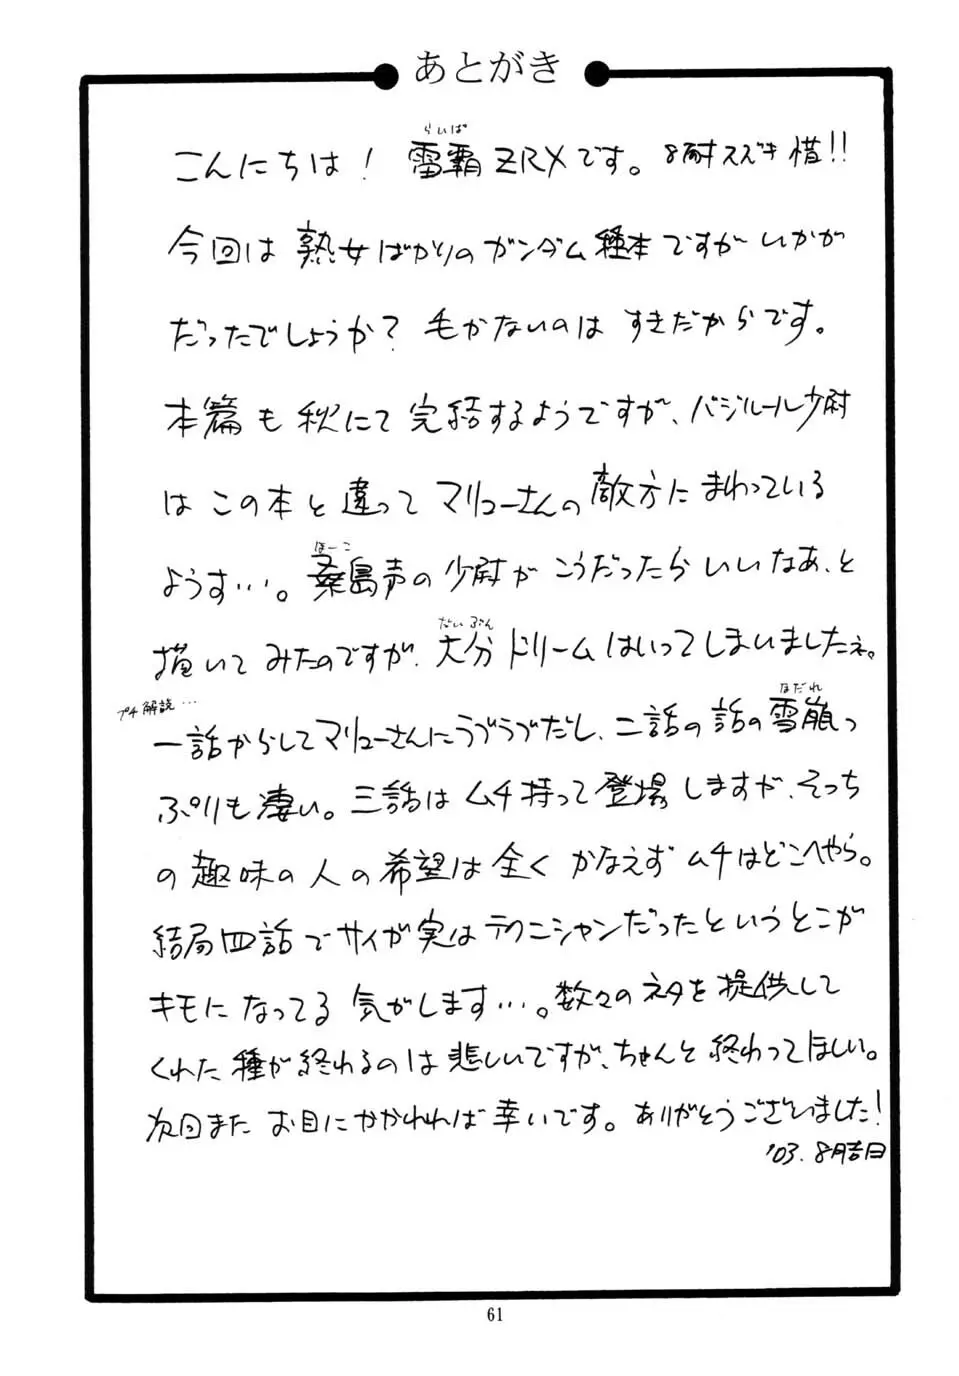 あとがき
こんにちは！ 雷覇ZRXです。 8耐スズキ惜!!
らいば
今回は 熟女ばかりのガンダム種本ですが いかが
だったでしょうか？ 毛がないのは すきだからです。
本篇も 秋にて 完結するようですが、バジルール少尉
は この本と 違って マリューさんの 敵方に まわっている
ようす…。桑島声の 少尉が こうだったら いいなあ、と
ほーこ
描いて みたのですが、大分 ドリーム はいって しまいましたネ。
だいぶん
プチ解説…
一話からして マリューさんに ラブラブだし、二話の 話の 雪崩っ
なだれ
ぷりも 凄い。三話は ムチ持って 登場 しますが、そっち
の 趣味の 人の 希望は 全く かなえず ムチは どこへやら。
結局 四話で サイが 実は テクニシャンだったと いうとこが
キモに なってる 気がします…。数々の ネタを 提供して
くれた 種が 終わるのは 悲しいですが、ちゃんと 終わって ほしい。
次回また お目に かかれれば 幸いです。ありがとうございました！
'03. 8月吉日
61